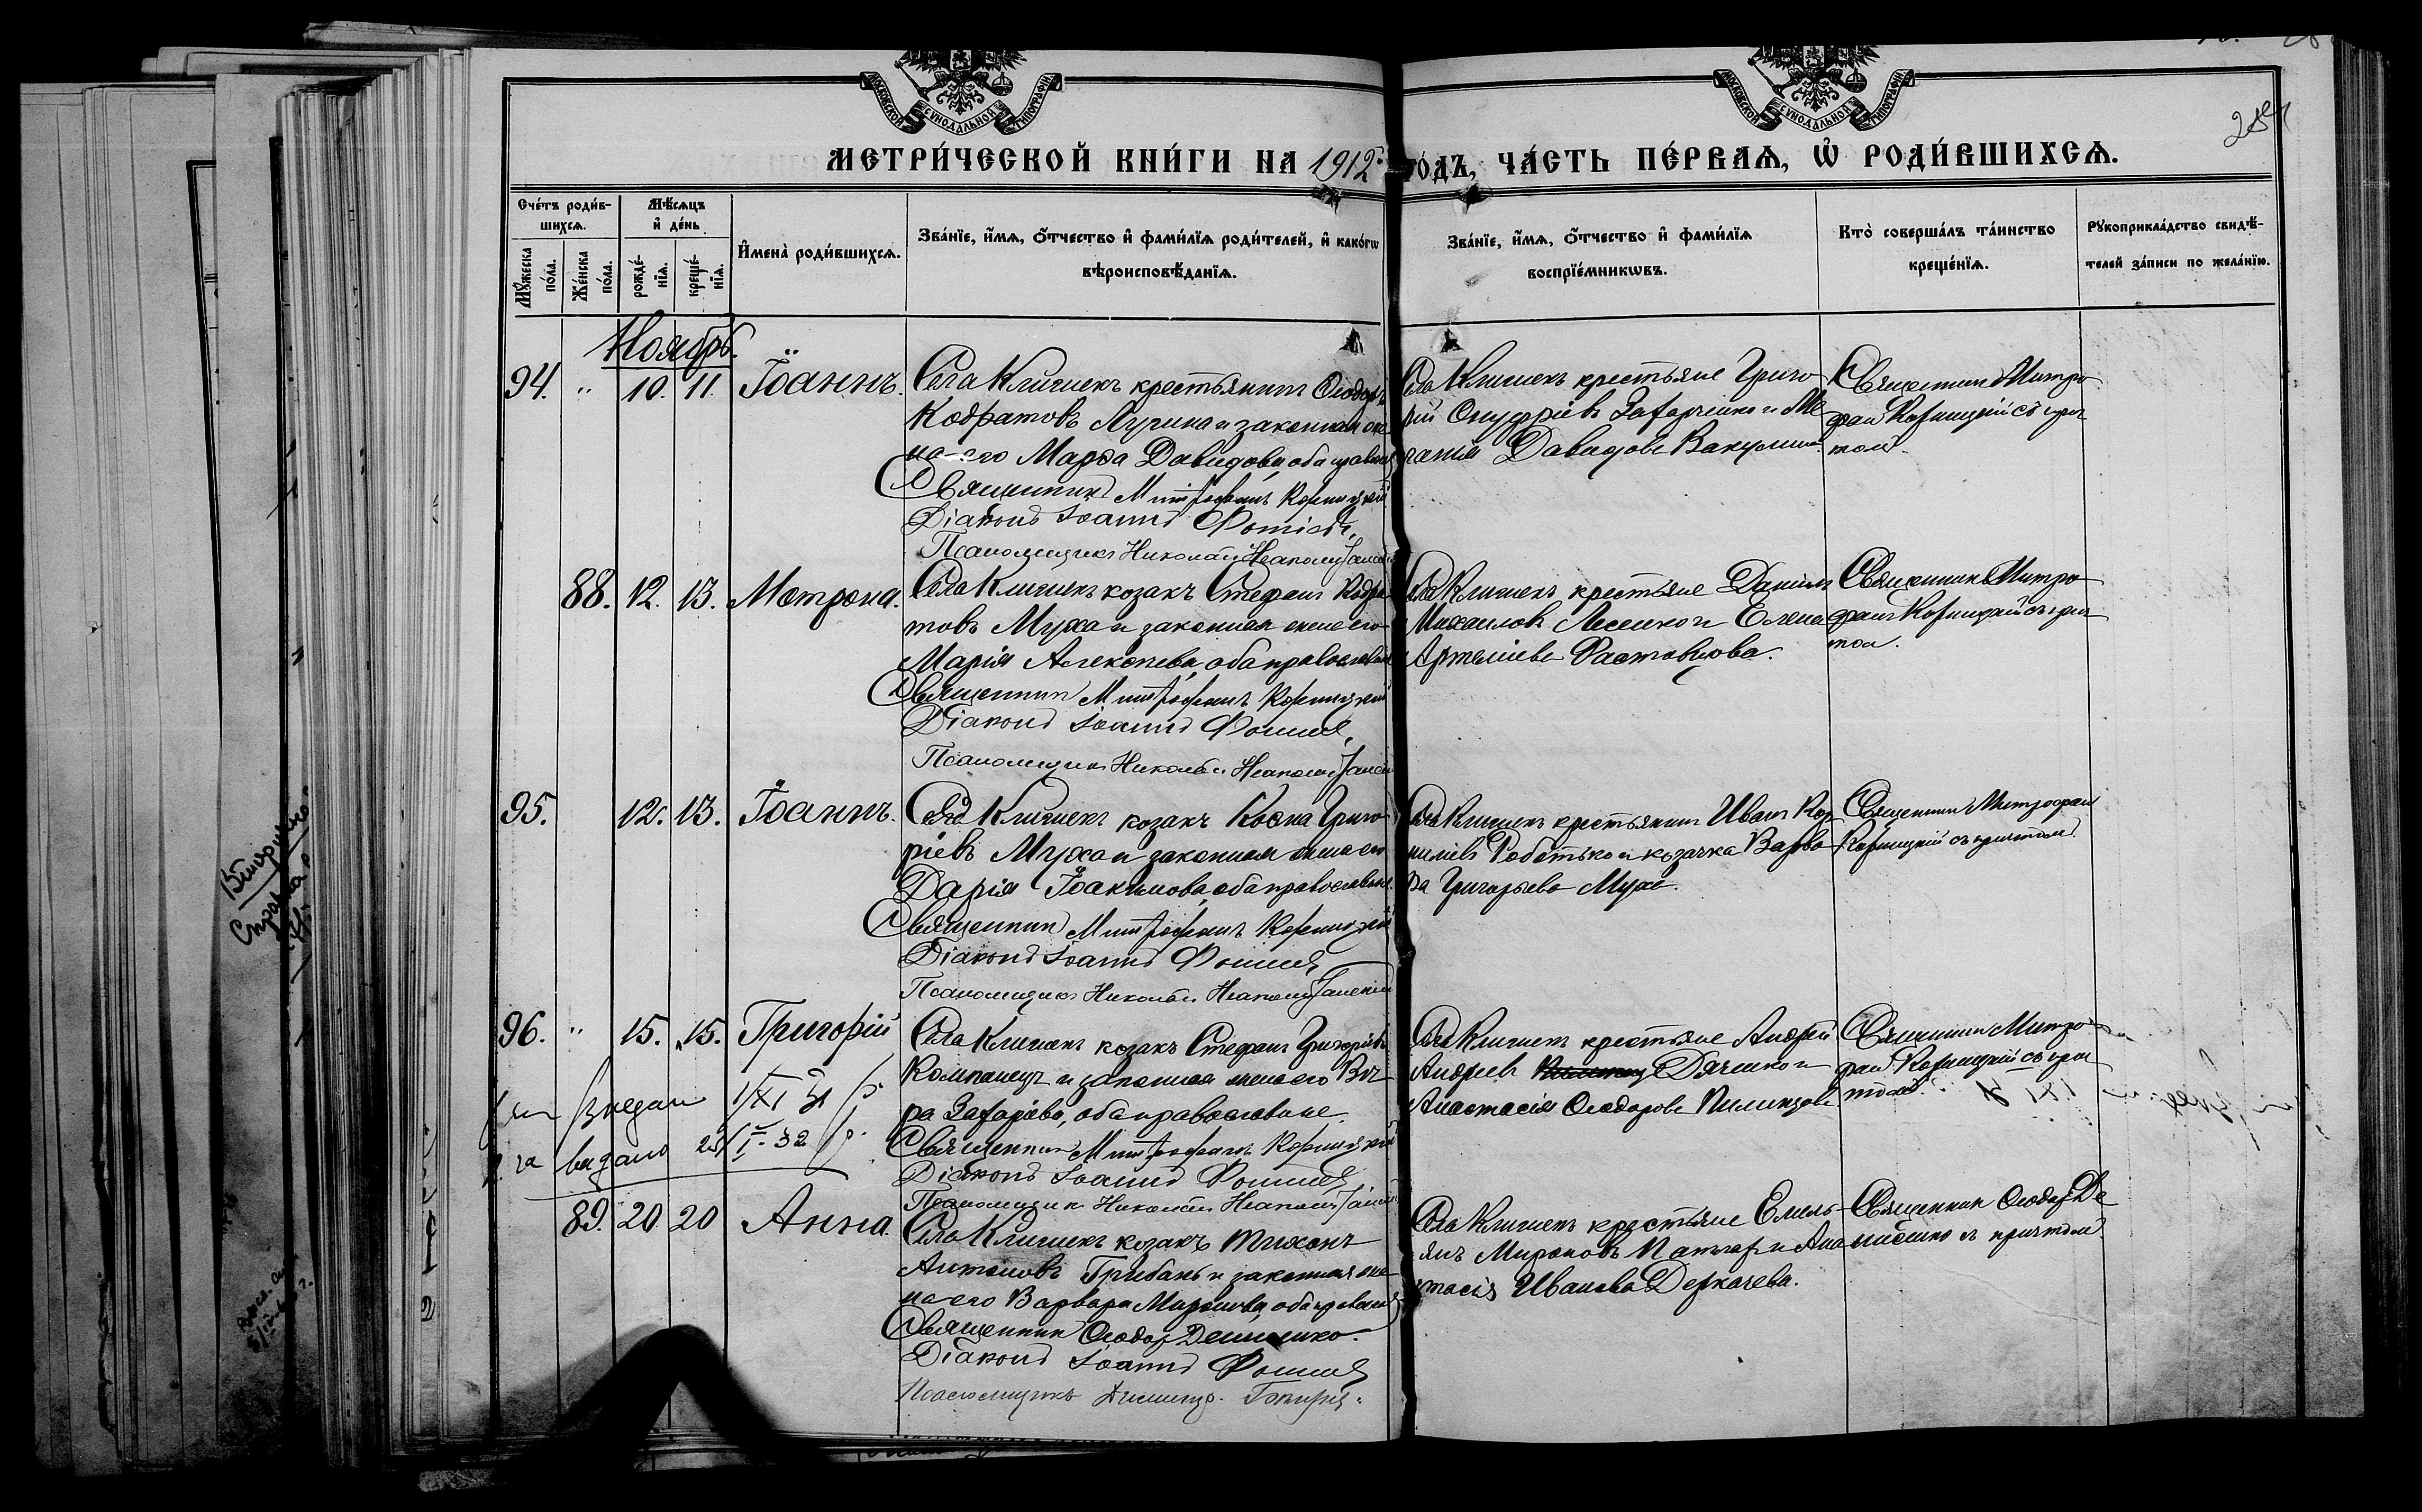 МОСКОВСКОЙ СѴНОДАЛЬНОЙ ТИПОГРАФІИ
МОСКОВСКОЙ СѴНОДАЛЬНОЙ ТИПОГРАФІИ
МЕТРИ́ЧЕСКОЙ КНИ́ГИ НА 1912 го́дъ, ЧА́СТЬ ПЕ́РВАѦ, Ѡ҆ РОДИ́ВШИХСѦ.
Сче́тъ роди́в-
шихсѧ.
Мꙋ́жеска по́ла.
Же́нска по́ла.
Мѣ́сѧцъ и҆ де́нь
рожде́-нїѧ.
креще́-нїѧ.
И҆мена̀ роди́вшихсѧ.
Зва́нїе, и҆́мѧ, ѻ҆́тчество и҆ фами́лїѧ роди́телей, и҆ како́гѡ
вѣроисповѣ́данїѧ.
Зва́нїе, и҆́мѧ, ѻ҆́тчество и҆ фами́лїѧ
воспрїе́мникѡвъ.
Кто̀ соверша́лъ та́инство
креще́нїѧ.
Рꙋкоприкла́дство свидѣ́-
телей за́писи по жела́нїю.
Ноябрь.
94. " 10. 11. Іоаннъ.
Села Клишекъ крестьянинъ Ѳеодоръ
Кодратовъ Лузина и законная же
на его Марѳа Давидова, оба православ
Священникъ Митрофанъ Корницкій
Діаконъ Іоаннъ Фотіевъ
Псаломщикъ Николай Неаполитанскій
Села Клишекъ крестьяне Григо
рій Онуфріевъ Захарченко и Ме
ланія Давидова Вакулина
Священникъ Митро
фанъ Корницкій съ прич
томъ.
88. 12. 13. Мотрона.
Села Клишекъ козакъ Стефанъ Кодра
товъ Муха и законная жена его
Марія Алексѣева, оба православн
Священникъ Митрофанъ Корницкій
Діаконъ Іоаннъ Фотіевъ
Псаломщикъ Николай Неаполитанскій
Села Клишекъ крестьяне Даніилъ
Михаиловъ Лесенко и Елена
Артеміева Растовцова.
Священникъ Митро
фанъ Корницкій съ прич
том.
95. 12. 13. Іоаннъ.
Села Клишекъ козакъ Косма Григо
ріевъ Муха и законная жена его
Дарія Іоакимова, оба православн.
Священникъ Митрофанъ Корницкій
Діаконъ Іоаннъ Фотіевъ
Псаломщикъ Николай Неаполитанскій
Села Клишекъ крестьянинъ Иванъ Кор
ниліевъ Работько и козачка Варва
ра Григорьева Муха.
Священникъ Митрофанъ
Корницкій съ причтомъ
96. " 15. 15. Григорій
Села Клишекъ козакъ Стефанъ Григоріевъ
Компанецъ и законная жена его Вѣ
ра Захаріева, оба православные.
Священникъ Митрофанъ Корницкій
Діаконъ Іоаннъ Фотіевъ
Псаломщикъ Николай Неаполитанскій
Села Клишекъ крестьяне Андрей
Андреевъ Дяченко и
Анастасія Ѳеодорова Пилипцова
Священникъ Митро
фанъ Корницкій съ прич
томъ.
1/XI 31 р
видано 25/I-32 р.
89. 20 20 Анна.
Села Клишекъ козакъ Тихонъ
Антоновъ Грибанъ и законная же
на его Варвара Миронова, оба православн
Священникъ Ѳеодоръ Демиденко.
Діаконъ Іоаннъ Фотіевъ
Псаломщикъ Димитр.
Села Клишекъ крестьяне Емель
янъ Мироновъ и Анас
тасія Иванова Деркачева.
Священникъ Ѳеодоръ Де
миденко съ причтомъ